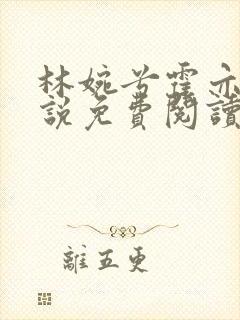 林婉兮霍亦
説免費閱讀
離五更